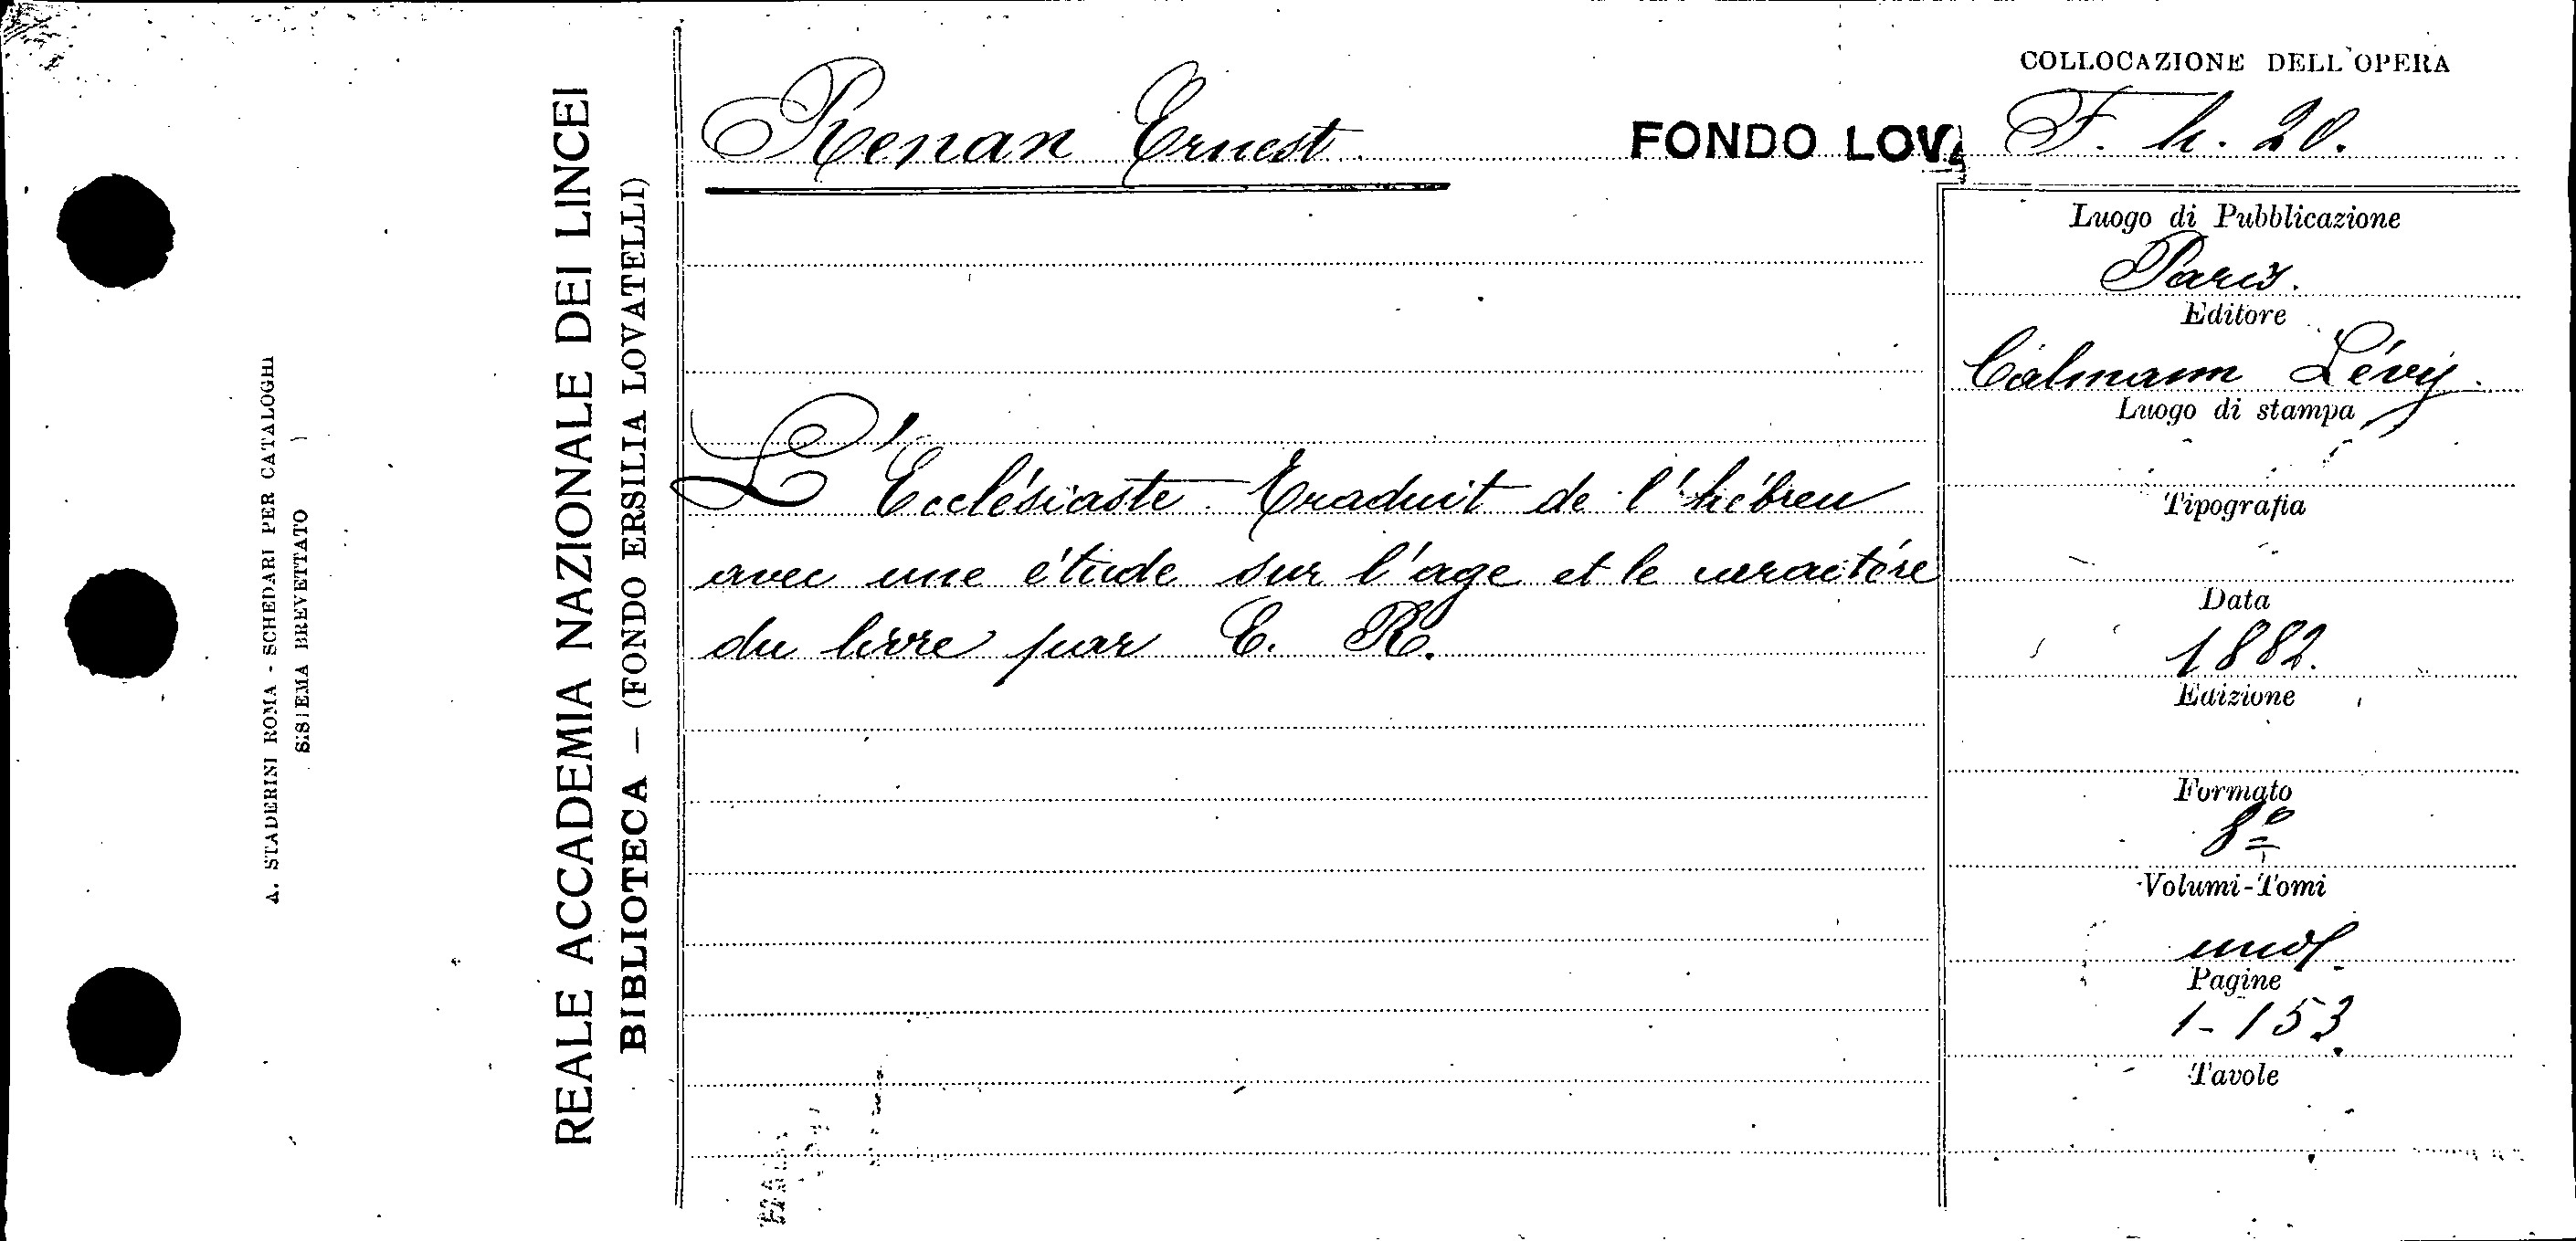 A. STADERINI ROMA - SCHEDARI PER CATALOGHI
SISTEMA BREVETTATO
REALE ACCADEMIA NAZIONALE DEI LINCEI
BIBLIOTECA — (FONDO ERSILIA LOVATELLI)
Renan Ernest
FONDO LOVA
L'Ecclésiaste. Traduit de l'hébreu
avec une étude sur l'age et le caractére
du livre par E. R.
COLLOCAZIONE DELL'OPERA
F. h. 20.
Luogo di Pubblicazione
Paris.
Editore
Calmann Lévy.
Luogo di stampa
Tipografia
Data
1882.
Edizione
Formato
8º
Volumi-Tomi
Pagine
1-153.
Tavole